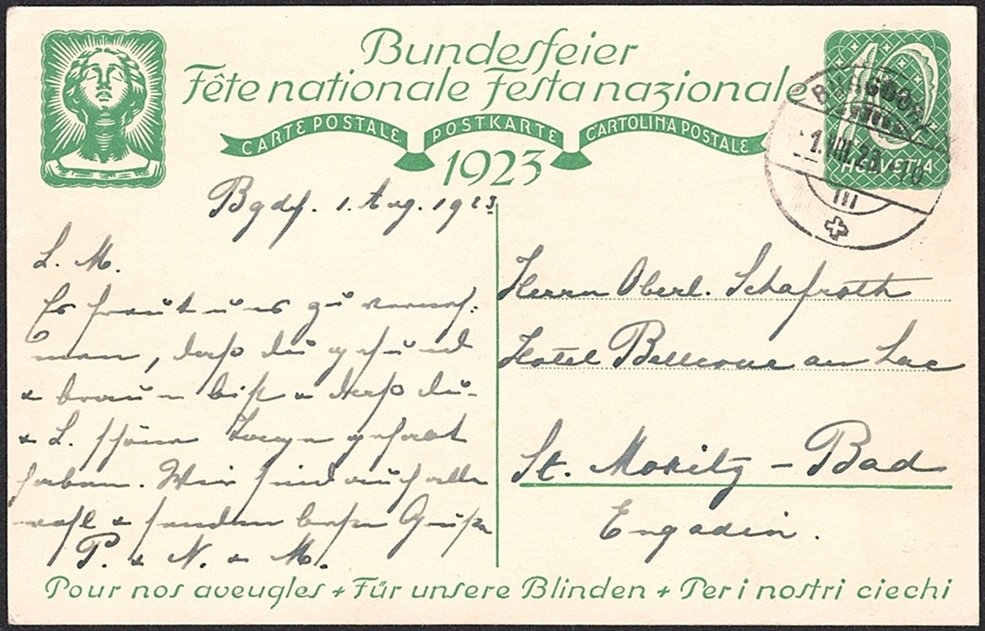 Bundesfeier
Fête nationale Festa nazionale
CARTE POSTALE POSTKARTE CARTOLINA POSTALE
1923
BURGDORF
1.VIII.23.-10
HELVETIA
III
Bgdf. 1. Aug. 1923
L. M.
Es freut uns zu verneh-
men, dass du gesund
& braun bist & dass du
& L. schöne Tage gehabt
haben. Wir sind auch alle
wohl & senden beste Grüsse
P. & N. & M.
Herrn Oberl. Schafroth
Hotel Bellevue au Lac
St. Moritz - Bad
Engadin.
Pour nos aveugles + Für unsere Blinden + Per i nostri ciechi